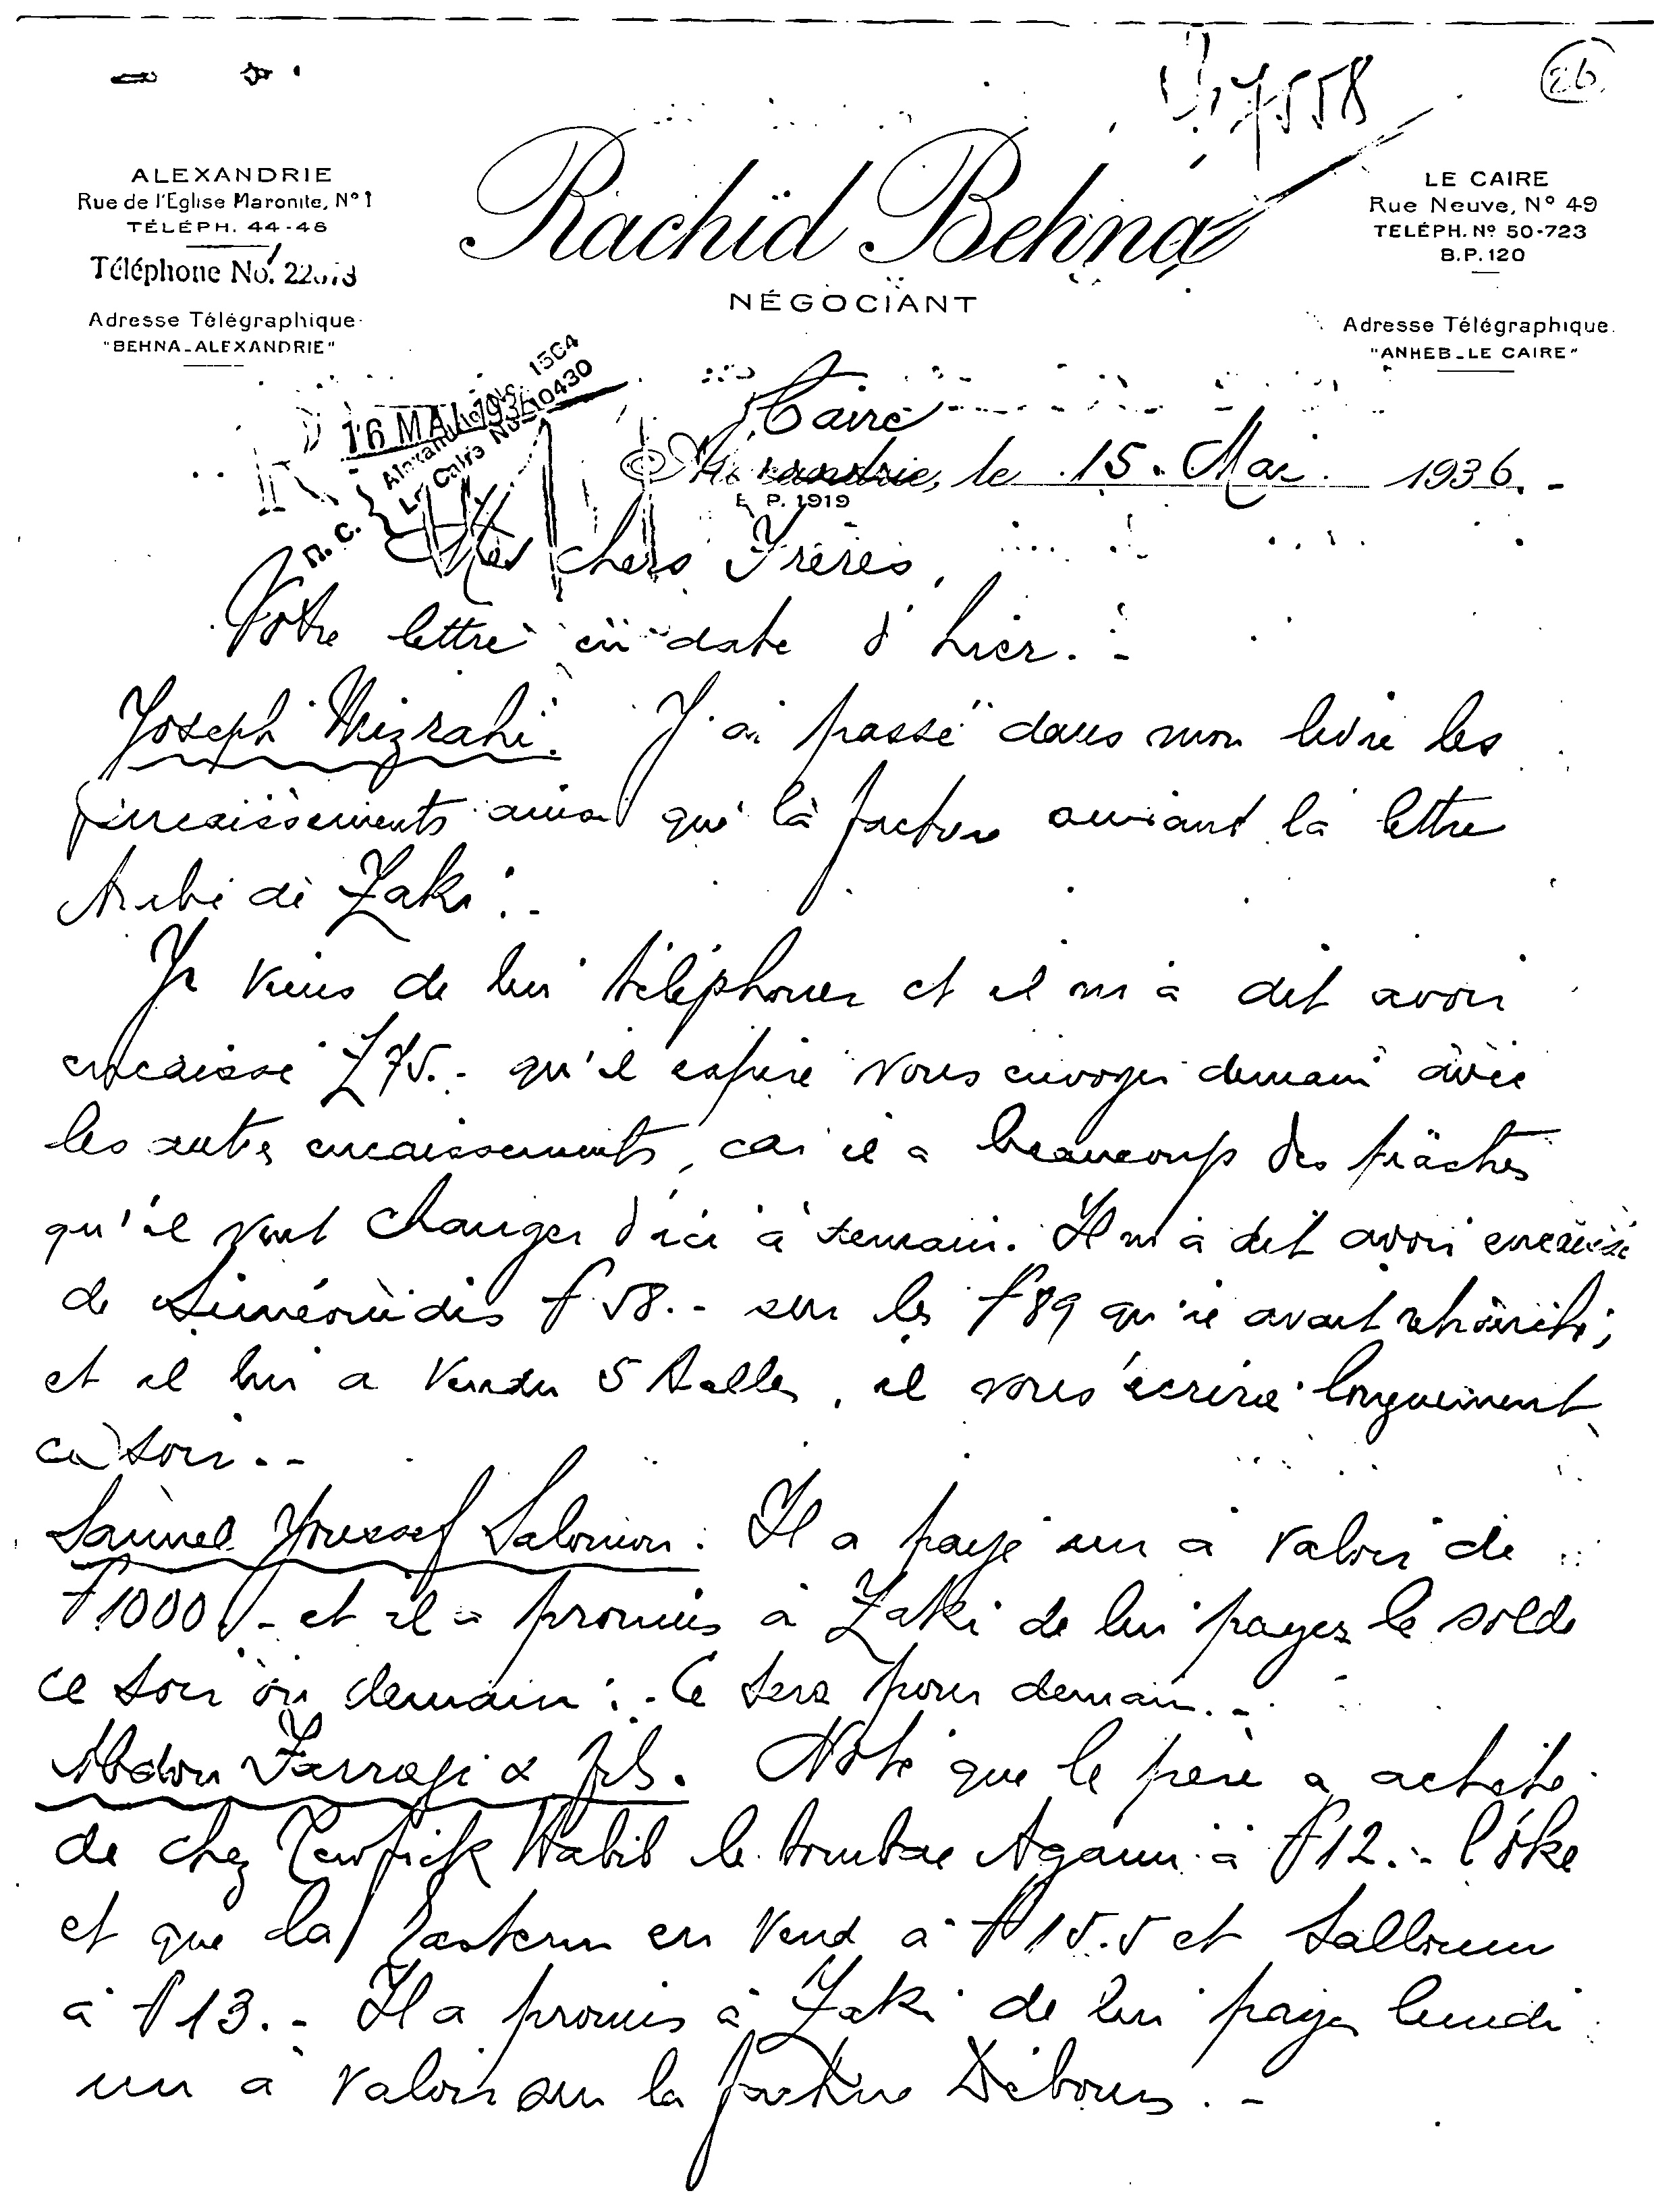 7558
26
ALEXANDRIE
Rue de l'Eglise Maronite, N° 1
TÉLÉPH. 44-46
Téléphone No.
Adresse Télégraphique
"BEHNA-ALEXANDRIE"
Rachid Behna
NÉGOCIANT
LE CAIRE
Rue Neuve, N° 49
TELÉPH. N° 50-723
B.P. 120
Adresse Télégraphique.
"ANHEB-LE CAIRE"
16 MAI 1936
R. C. Alexandrie No. 1504
Le Caire No 10430
Caire
Alexandrie, le 15. Mai 1936.-
B. P. 1919
Mes chers Frères,
Votre lettre en date d'hier.-
Joseph Mizrahi. J'ai passé dans mon livre les
encaissements ainsi que la facture suivant la lettre
Arabe de Zaki.-
Je viens de lui téléphoner et il m'a dit avoir
encaissé £75.- qu'il espère vous envoyer demain avec
les autres encaissements, car il a beaucoup des
qu'il veut changer d'ici à demain. Il m'a dit avoir encaissé
de Siméonidis £58.- sur les £89 qu'il avait
et il lui a vendu 5 Balles, il vous écrira longuement
ce soir.-
Samuel Youssef Salomon. Il a payé un à valoir de
£1000.- et il a promis à Zaki de lui payer le solde
ce soir ou demain.- Ce sera pour demain.-
Abdou Farragi & fils. Noté que le père a acheté
de chez Tewfick Habib le tombac Agami à £12.- l'oke
et que la Eastern en vend à £15.5 et Salloum
à £13.- Il a promis à Zaki de lui payer lundi
un à valoir sur la facture Débours.-